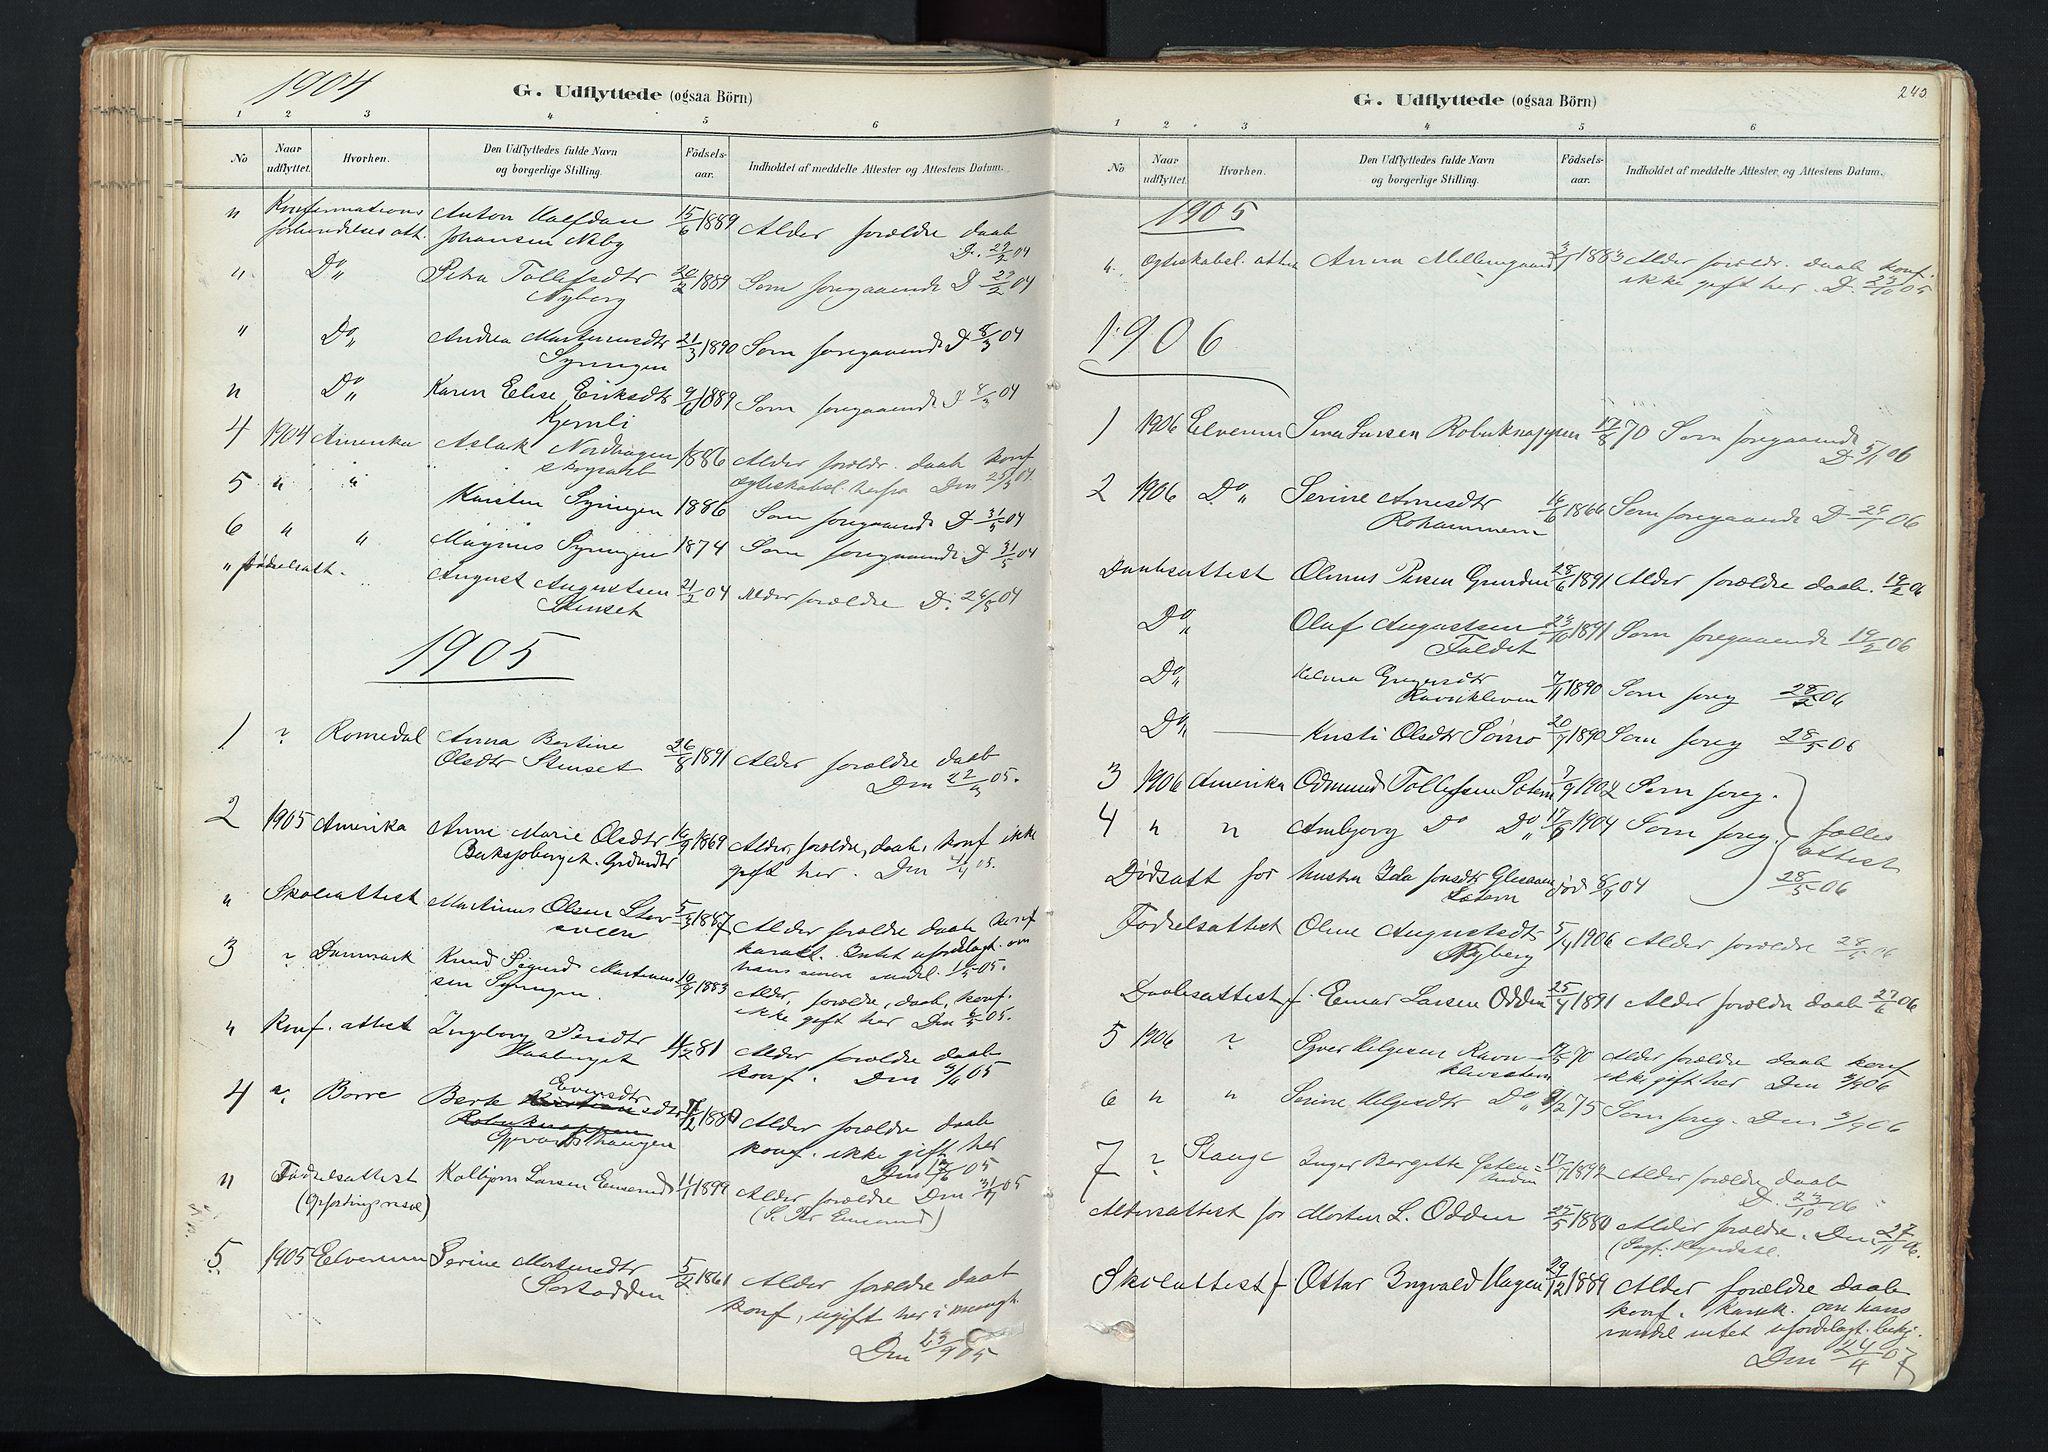 1904
G. Udflyttede (ogsaa Börn)
1 2 3 4 5 6
No
Naar udflyttet.
Hvorhen.
Den Udflyttedes fulde Navn og borgerlige Stilling.
Födsels-aar.
Indholdet af meddelte Attester og Attestens Datum.
" Konfirmations Anton Halfdan 15/6 1889 Alder forældre daab
forberedelses att. Johansen Næby D. 29/2 04
" Do " Petra Tollefsdtr 20/2 1889 Som foregaaende D 29/2 04
Nyberg
" Do " Andrea Martinusdtr 21/3 1890 Som foregaaende D 8/3 04
Syringen
" Do " Karen Elise Eriksdtr 9/6 1889 Som foregaaende D 8/3 04
Kjernli
4 1904 Amerika Aslak Nordhagen 1886 Alder forældr. daab konf
skogsarb ægteskabsl. herfra Den 25/3 04.
5 " " Karsten Syringen 1886 Som foregaaende D 31/5 04
6 " " Magnus Syringen 1874 Som foregaaende D 31/5 04
" fødselsatt. August Augustsen 21/2 04 Alder forældre D. 26/8 04
Stenset
1905
1 ? Romedal Anna Bertine 26/8 1891 Alder forældre daab
Olsdtr Stenset Den 22/3 05.
2 1905 Amerika Anne Marie Olsdtr 16/9 1869 Alder, forældre, daab, konf ikke
Beksjøberget. gift her. Den 4/4 05.
" Skoleattest Martinus Olsen Stor 5/3 1887 Alder forældre daab konf
sveen karakt. Intet ufordelagt. om
hans vandel. 05.
3 " Danmark Knud Sigurd Martinus 19/9 1883 Alder, forældre, daab, konf.
sen Syringen. ikke gift her Den 6/5 05.
" Konf. attest Ingeborg Persdtr 11/2 81 Alder forældre daab
Haaberget konf. Den 3/6 05
4 ". Borre Berte Eversdtr 17/2 1880 Alder forældre daab
konf. ikke gift her
Den 17/6 05
" Fødselsattest Kolbjørn Larsen Emserud 11/1 1899 Alder forældre Den 31/7 05
(Opfostringsresol) (S. Kr Emserud)
5 1905 Elverum Serine Mortensdtr 5/2 1861 Alder forældre daab
Sorkodden konf, ugift her i menigh.
Den 13/9 05

G. Udflyttede (ogsaa Börn)
243
1 2 3 4 5 6
No
Naar udflyttet.
Hvorhen.
Den Udflyttedes fulde Navn og borgerlige Stilling.
Födsels-aar.
Indholdet af meddelte Attester og Attestens Datum.
1905
". Ægteskabsl. attest Anna Mellemgaard 3/7 1883 Alder forældr. daab konf.
ikke gift her. D. 23/10 05
1906
1 1906 Elverum Larsen Robuknappen 17/8 70 Som foregaaende
D. 5/1 06
2 1906 Do " Serine Arnesdtr 16/6 1866 Som foregaaende D 29/1 06
Rohammern
Daabsattest Olenus Persen Grunden 28/6 1891 Alder forældre daab. 19/2 06
Do " Oluf Augustsen 23/10 1891 Som foregaaende 19/2 06
Faldet
Do " Helma Gregersdtr 7/11 1890 Som foreg 28/2 06
Ravnkleven
Do " Kristi Olsdtr Sørmo 20/7 1890 Som foreg 28/5 06
3 1906 Amerika Odmund Tollefsen Sætern 7/9 1902 Som foreg.
4 " " Ambjørg Do Do " 11/9 1904 Som foreg. fælles
attest
28/5 06
Dødsatt for hustru Ida Jonsdtr død 8/9 04
Sætern
Fødselsattest Oline Augustsdtr 5/4 1906 Alder forældre 28/5 06
Nyberg
Daabsattest f. Einar Larsen Odden 25/4 1891 Alder forældre daab 27/6 06
5 1906 ? Syver Helgesen Ravn- 19/5 70 Alder forældre daab konf
klevsetern ikke gift her Den 3/9 06
6 " " Serine Helgesdtr Do " 9/2 75 Som foreg. Den 3/9 06
7 ? Stange Inger Bergette Østen= 17/7 1892 Alder forældre daab
D. 23/10 06
Aldersattest for Morten L. Odden 25/5 1880 Alder forældre. Den 27/11 06.
(Sagf. Hyerdahl.
Skoleattest f Ottar Ingvald Hagen 29/12 1889 Alder forældre daab
konf. Karak. om hans
vandel intet ufordelagt. bekj.
Den 24/4 07